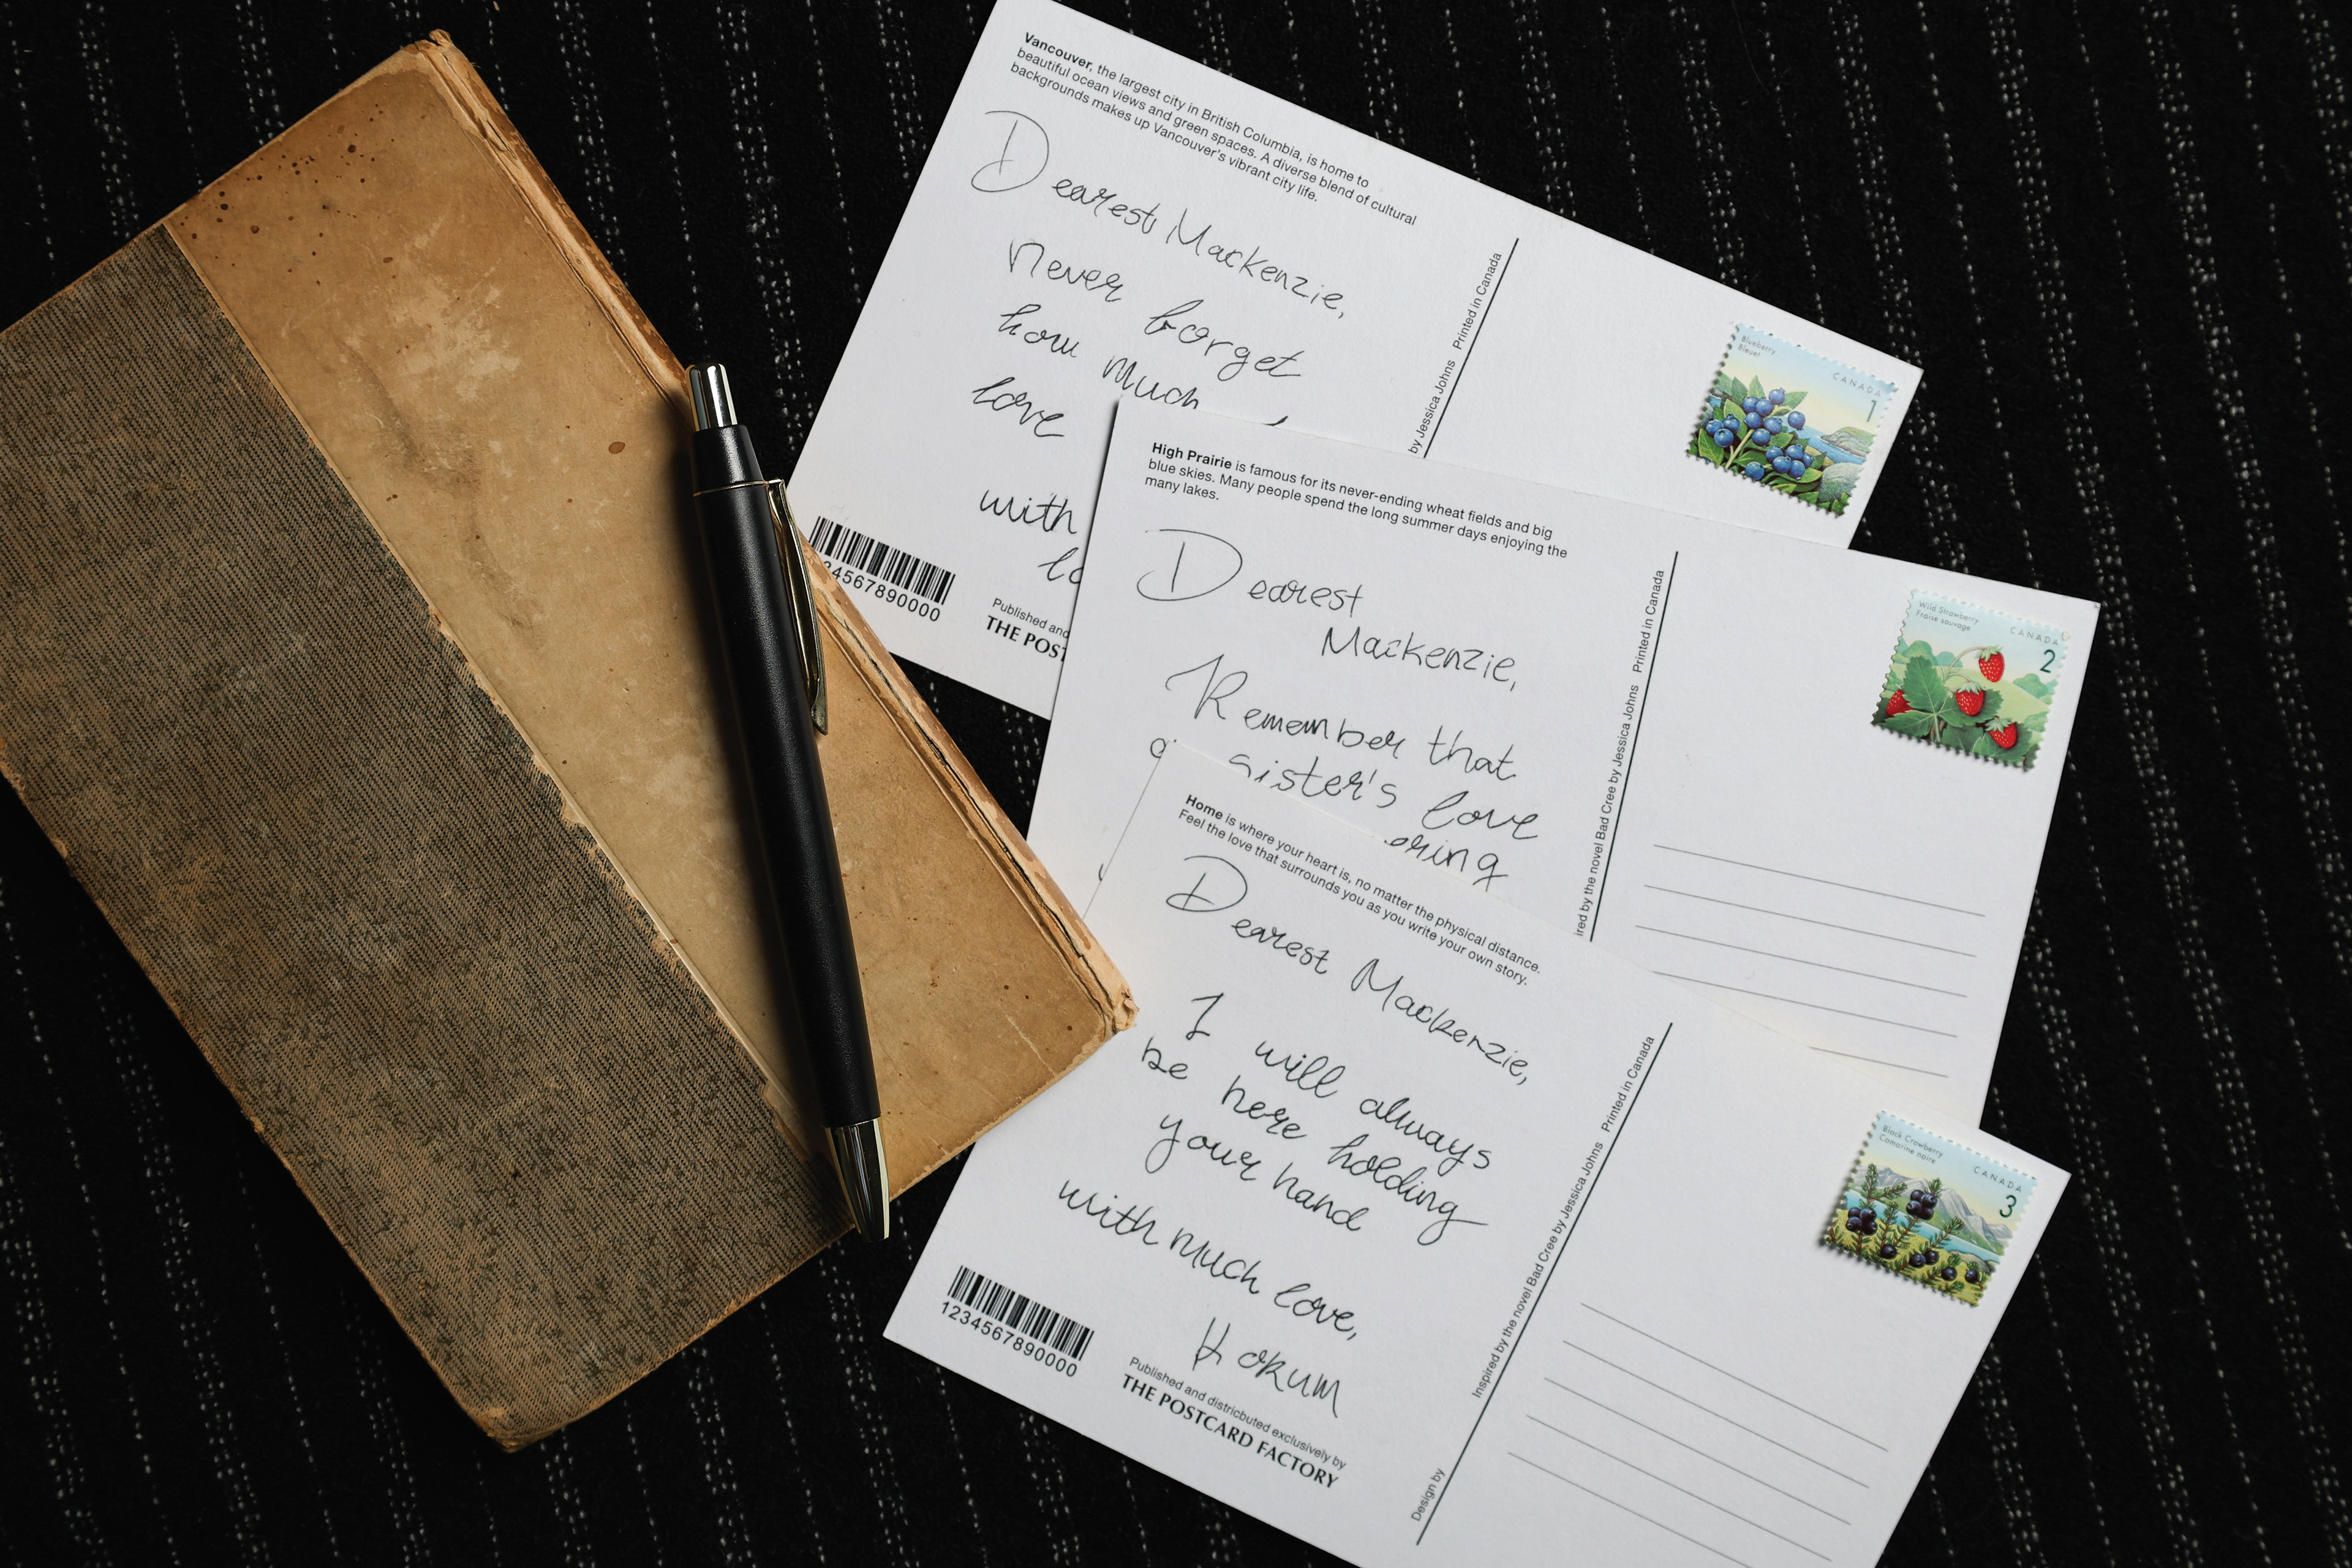 Vancouver, the largest city in British Columbia, is home to
beautiful ocean views and green spaces. A diverse blend of cultural
backgrounds makes up Vancouver's vibrant city life.
Dearest Mackenzie,
Never forget
how much
love
with
45678900000
Published and
THE POST
by Jessica Johns Printed in Canada
Blueberry
Bleuet
CANADA
1
High Prairie is famous for its never-ending wheat fields and big
blue skies. Many people spend the long summer days enjoying the
many lakes.
Dearest
Mackenzie,
Remember that
a sister's love
by the novel Bad Cree by Jessica Johns Printed in Canada
Wild Strawberry
Fraise sauvage
CANADA
2
Home is where your heart is, no matter the physical distance.
Feel the love that surrounds you as you write your own story.
Dearest Mackenzie,
I will always
be here holding
your hand
with much love,
Hokum
1234567890000
Published and districbuted exclusively by
THE POSTCARD FACTORY
Design by Inspired by the novel Bad Cree by Jessica Johns Printed in Canada
Black Crowberry
Camarine noire
CANADA
3